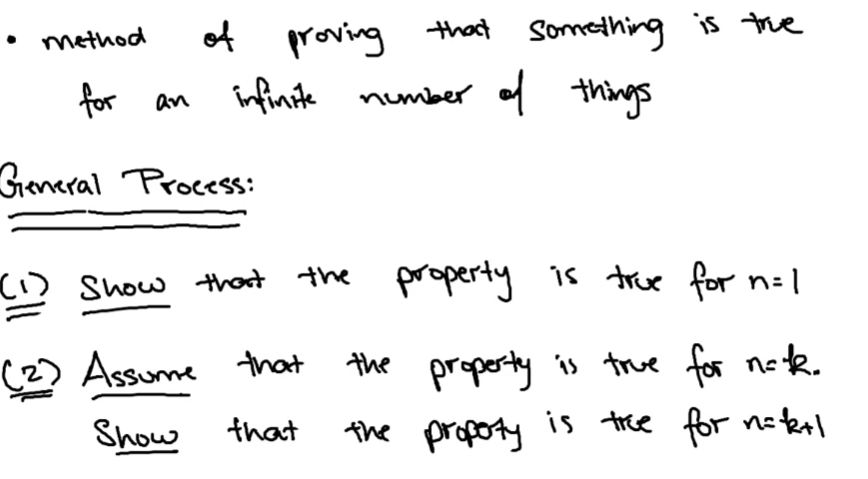 • method of proving that something is true
for an infinite number of things
General Process:
(1) Show that the property is true for n=1
(2) Assume that the property is true for n=k.
Show that the property is true for n=k+1